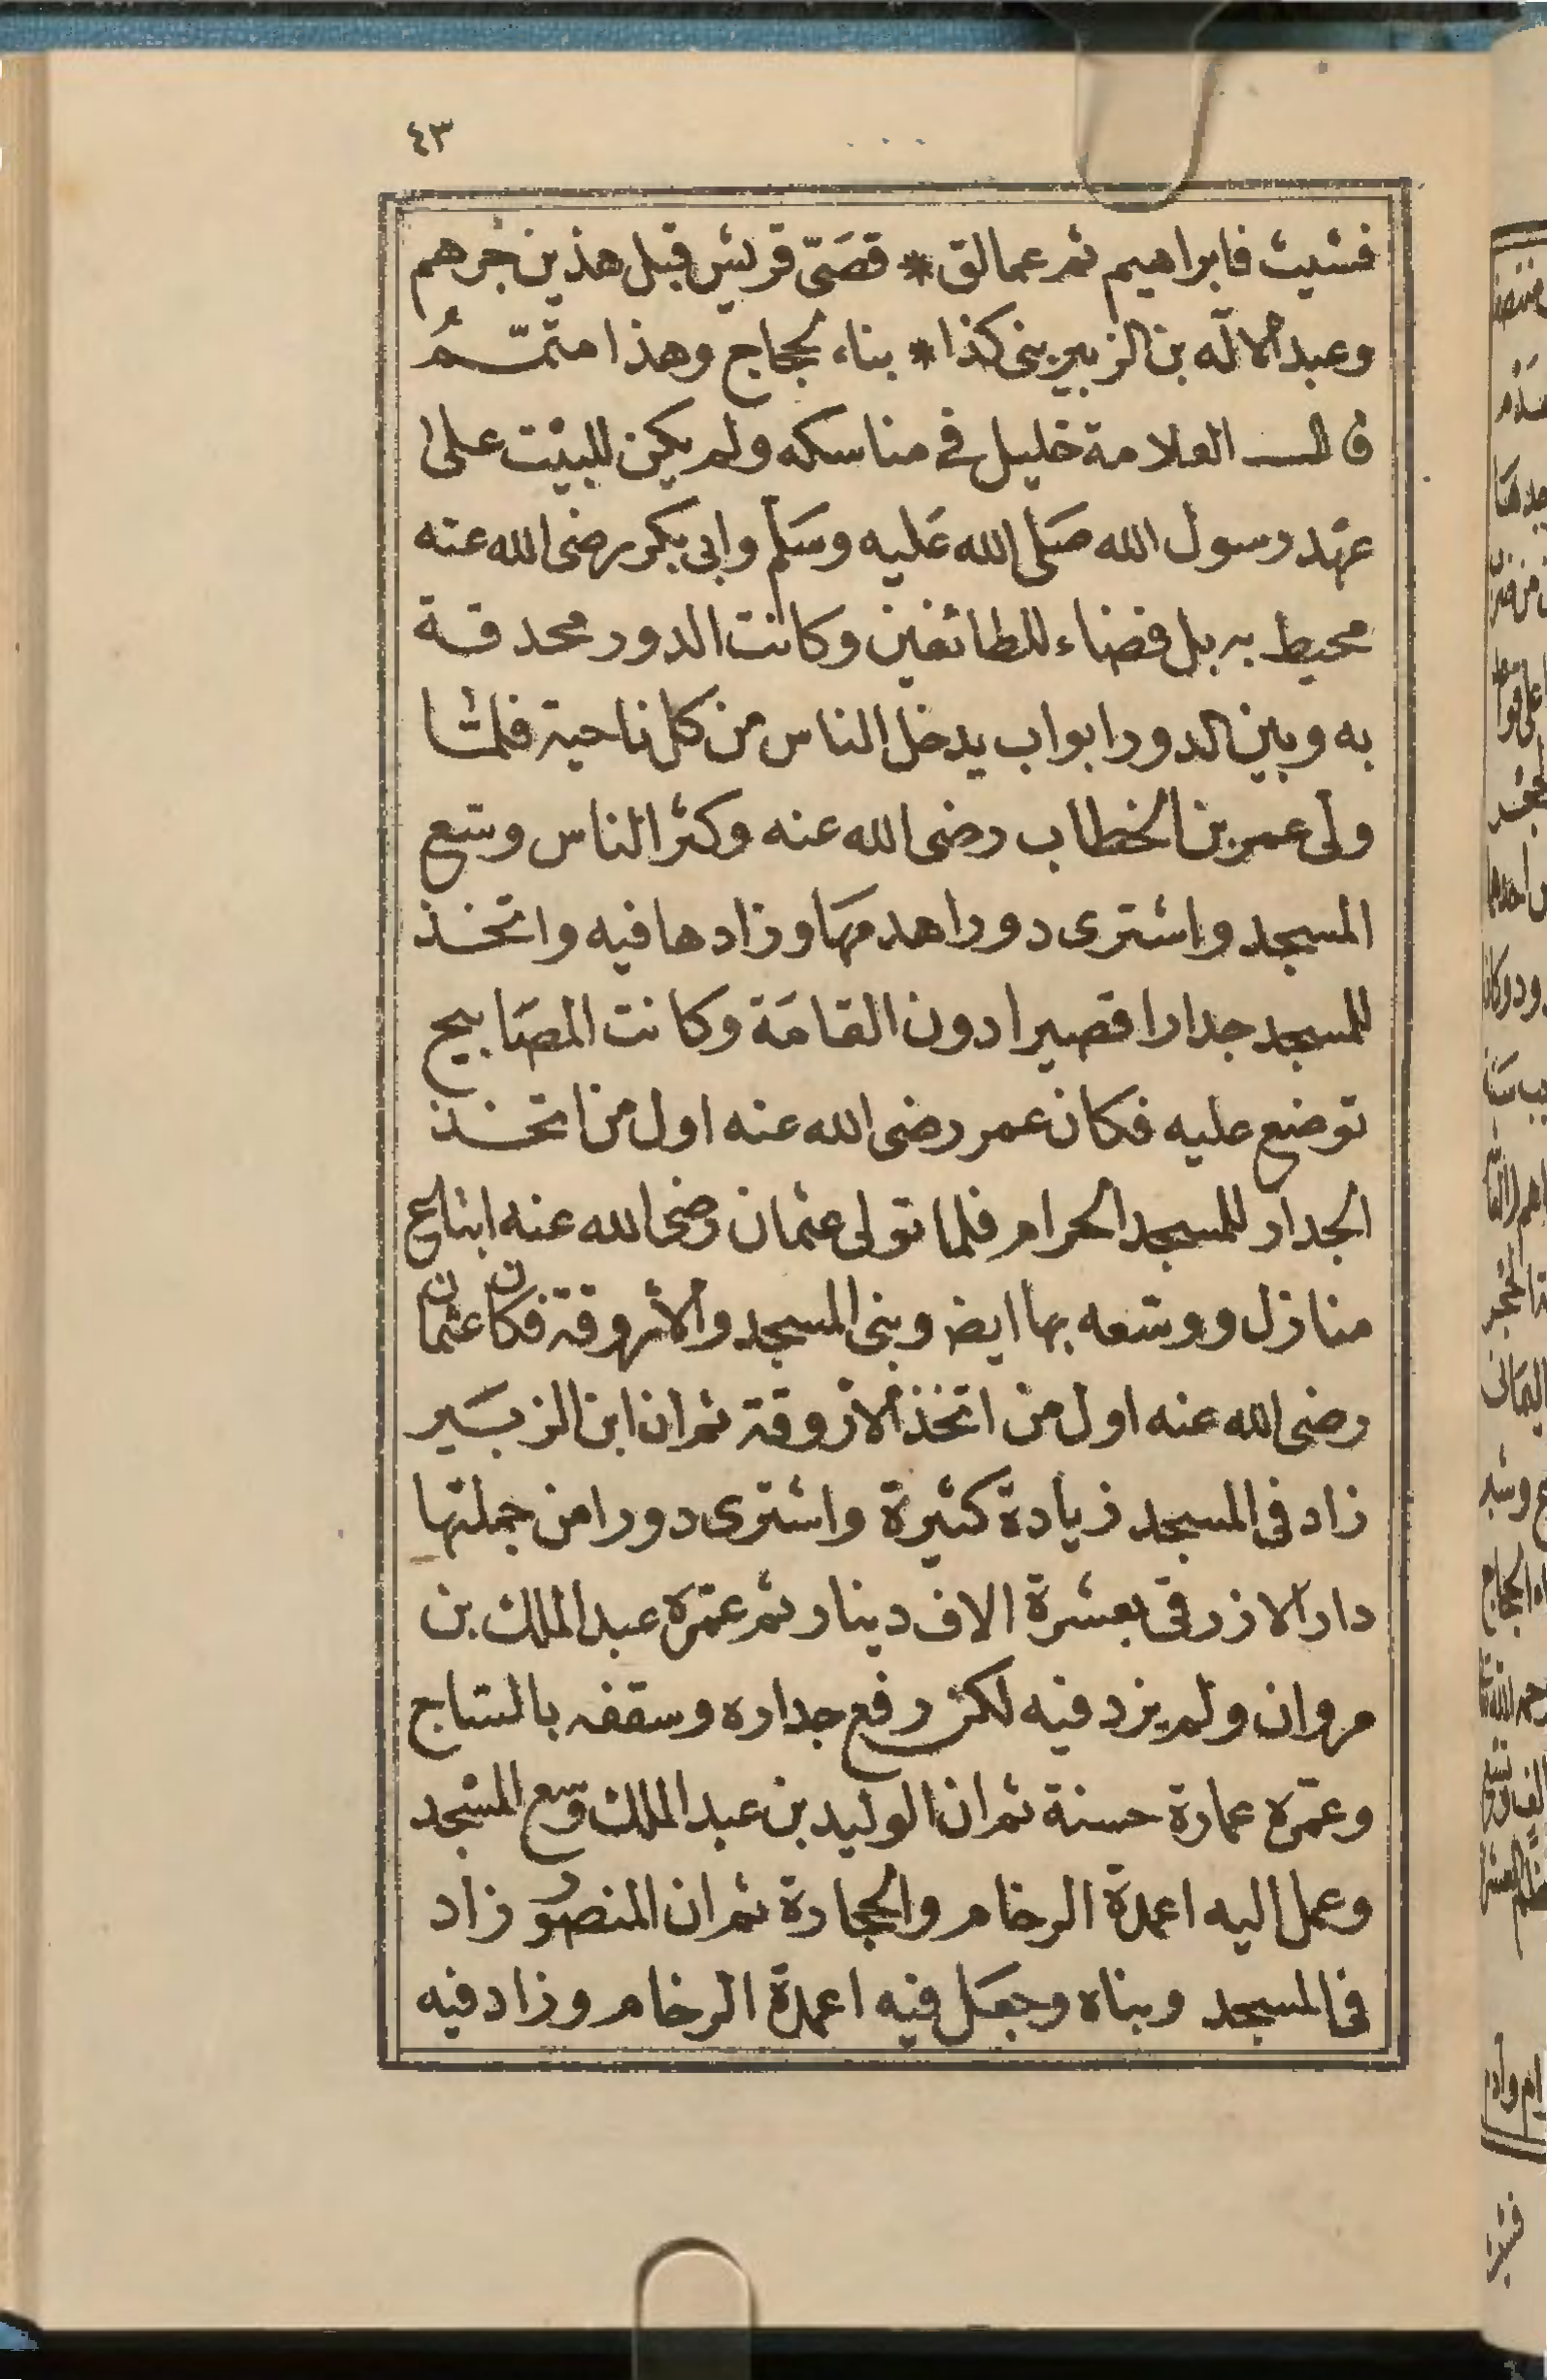 ٤٣
فشيث فابراهيم ثم عمالق * قصَيّ قريش قبل هذين جُرهم
وعبد الاله بن الزبير بنى كذا * بناء لحجاج وهذا متمّــمُ
قالــــ العلامة خليل فى مناسكه ولم يكن للبيْت على
عهد رسول الله صَلى الله عَليه وسَلم وابى بكر رضى الله عنه
محيط به بل فضاء للطائفين وكانت الدور محدقــة
به وبين الدور ابواب يدخل الناس من كل ناحية فلمّــا
ولى عمر بن الخطاب رضى الله عنه وكثر الناس وسّع
المسجد واشترى دورا هدمهَا وزادها فيه واتخــذ
للمسجد جدارا قصيرا دون القامَة وكانت المصَابيح
توضع عليه فكان عمر رضى الله عنه اول من اتخــذ
الجدار للمسجد الحرام فلما تولى عثمان رضى الله عنه ابتاع
منازل ووسّعه بها ايضا وبنى المسجد والأروقة فكان عثمان
رضى الله عنه اول من اتخذ الأروقة ثم ان ابن الزبَــير
زاد فى المسجد زيادة كثيرة واشترى دورا من جملتها
دار الازرقى بعشرة الاف دينار ثم عمّره عبد الملك بن
مروان ولم يزد فيه لكن رفع جداره وسقفه بالسّاج
وعمّره عمارة حسنة ثم ان الوليد بن عبد الملك وسّع المسْجد
وعمل اليه اعمدة الرخام والحجارة ثم ان المنصُور زاد
فى المسجد وبناه وجعَل فيه اعمدة الرخام وزاد فيه